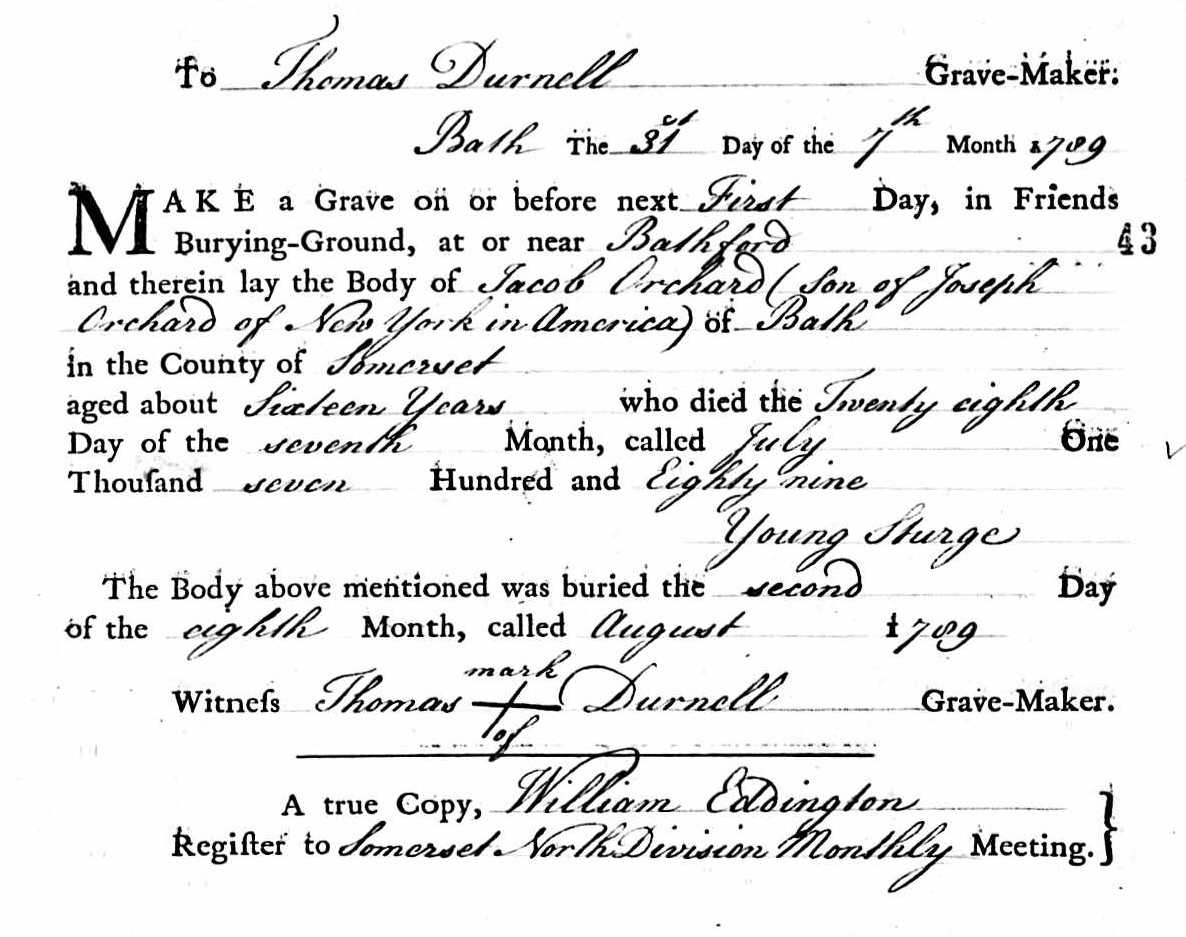 To Thomas Durnell Grave-Maker:
Bath The 31st Day of the 7th Month 1789
MAKE a Grave on or before next First Day, in Friends
Burying-Ground, at or near Bathford 43
and therein lay the Body of Jacob Orchard (Son of Joseph
Orchard of New York in America) of Bath
in the County of Somerset
aged about Sixteen Years who died the Twenty eighth
Day of the seventh Month, called July One
Thouſand seven Hundred and Eighty nine
Young Sturge
The Body above mentioned was buried the second Day
of the eighth Month, called August 1789
mark
Witneſs Thomas Durnell Grave-Maker.
of
A true Copy, William Eddington
Regiſter to Somerset North Division Monthly Meeting.}